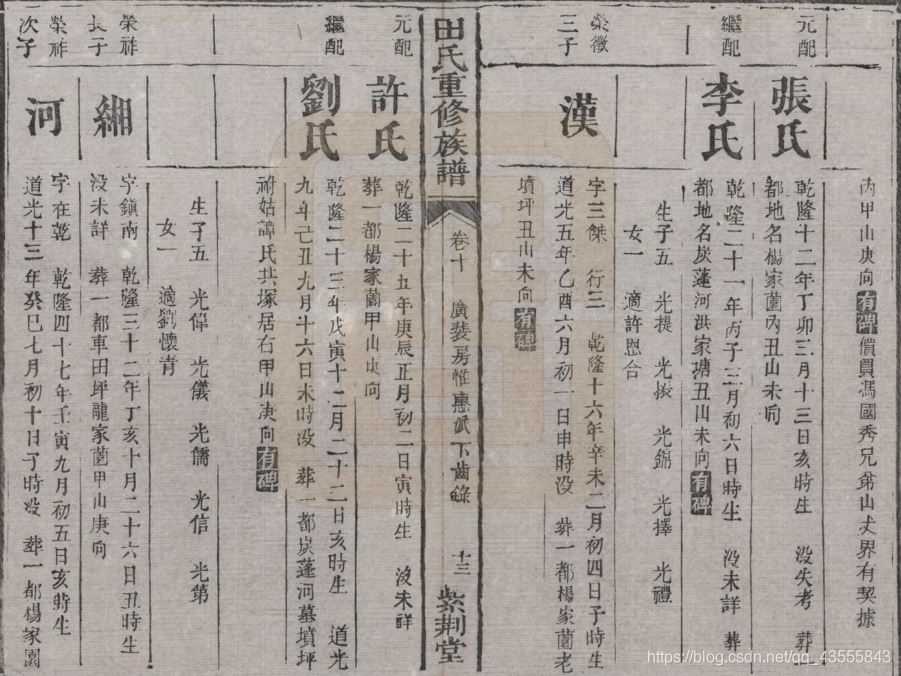 丙甲山庚向有碑價買馮國秀兄弟山丈界有契據
元配
張氏
乾隆十二年丁卯三月十三日亥時生 沒失考 葬一
都地名楊家園丙丑山未向
繼配
李氏
乾隆二十一年丙子三月初六日時生 沒未詳 葬一
都地名炭蓬河洪家塘丑山未向有碑
生子五 光提 光振 光錦 光擇 光禮
女一 適許恩合
榮徽
三子
漢
字三傑 行三 乾隆十六年辛未二月初四日子時生
道光五年乙酉六月初一日申時沒 葬一都楊家園老
墳坪丑山未向有碑
田氏重修族譜
卷十 廣裝房惟惠派下齒錄
十三
紫荆堂
元配
許氏
乾隆二十五年庚辰正月初二日寅時生 沒未詳
葬一都楊家園甲山庚向
繼配
劉氏
乾隆二十三年戊寅十二月二十二日亥時生 道光
九年己丑九月十六日未時沒 葬一都炭蓬河墓墳坪
祔姑譚氏共塚居右甲山庚向有碑
生子五 光偉 光儀 光儒 光信 光第
女一 適劉懷青
榮祚
長子
緗
字鎮南 乾隆三十二年丁亥十月二十六日丑時生
沒未詳 葬一都車田坪龍家園甲山庚向
榮祚
次子
河
字在乾 乾隆四十七年壬寅九月初五日亥時生
道光十三年癸巳七月初十日子時沒 葬一都楊家園
https://blog.csdn.net/qq_43555843